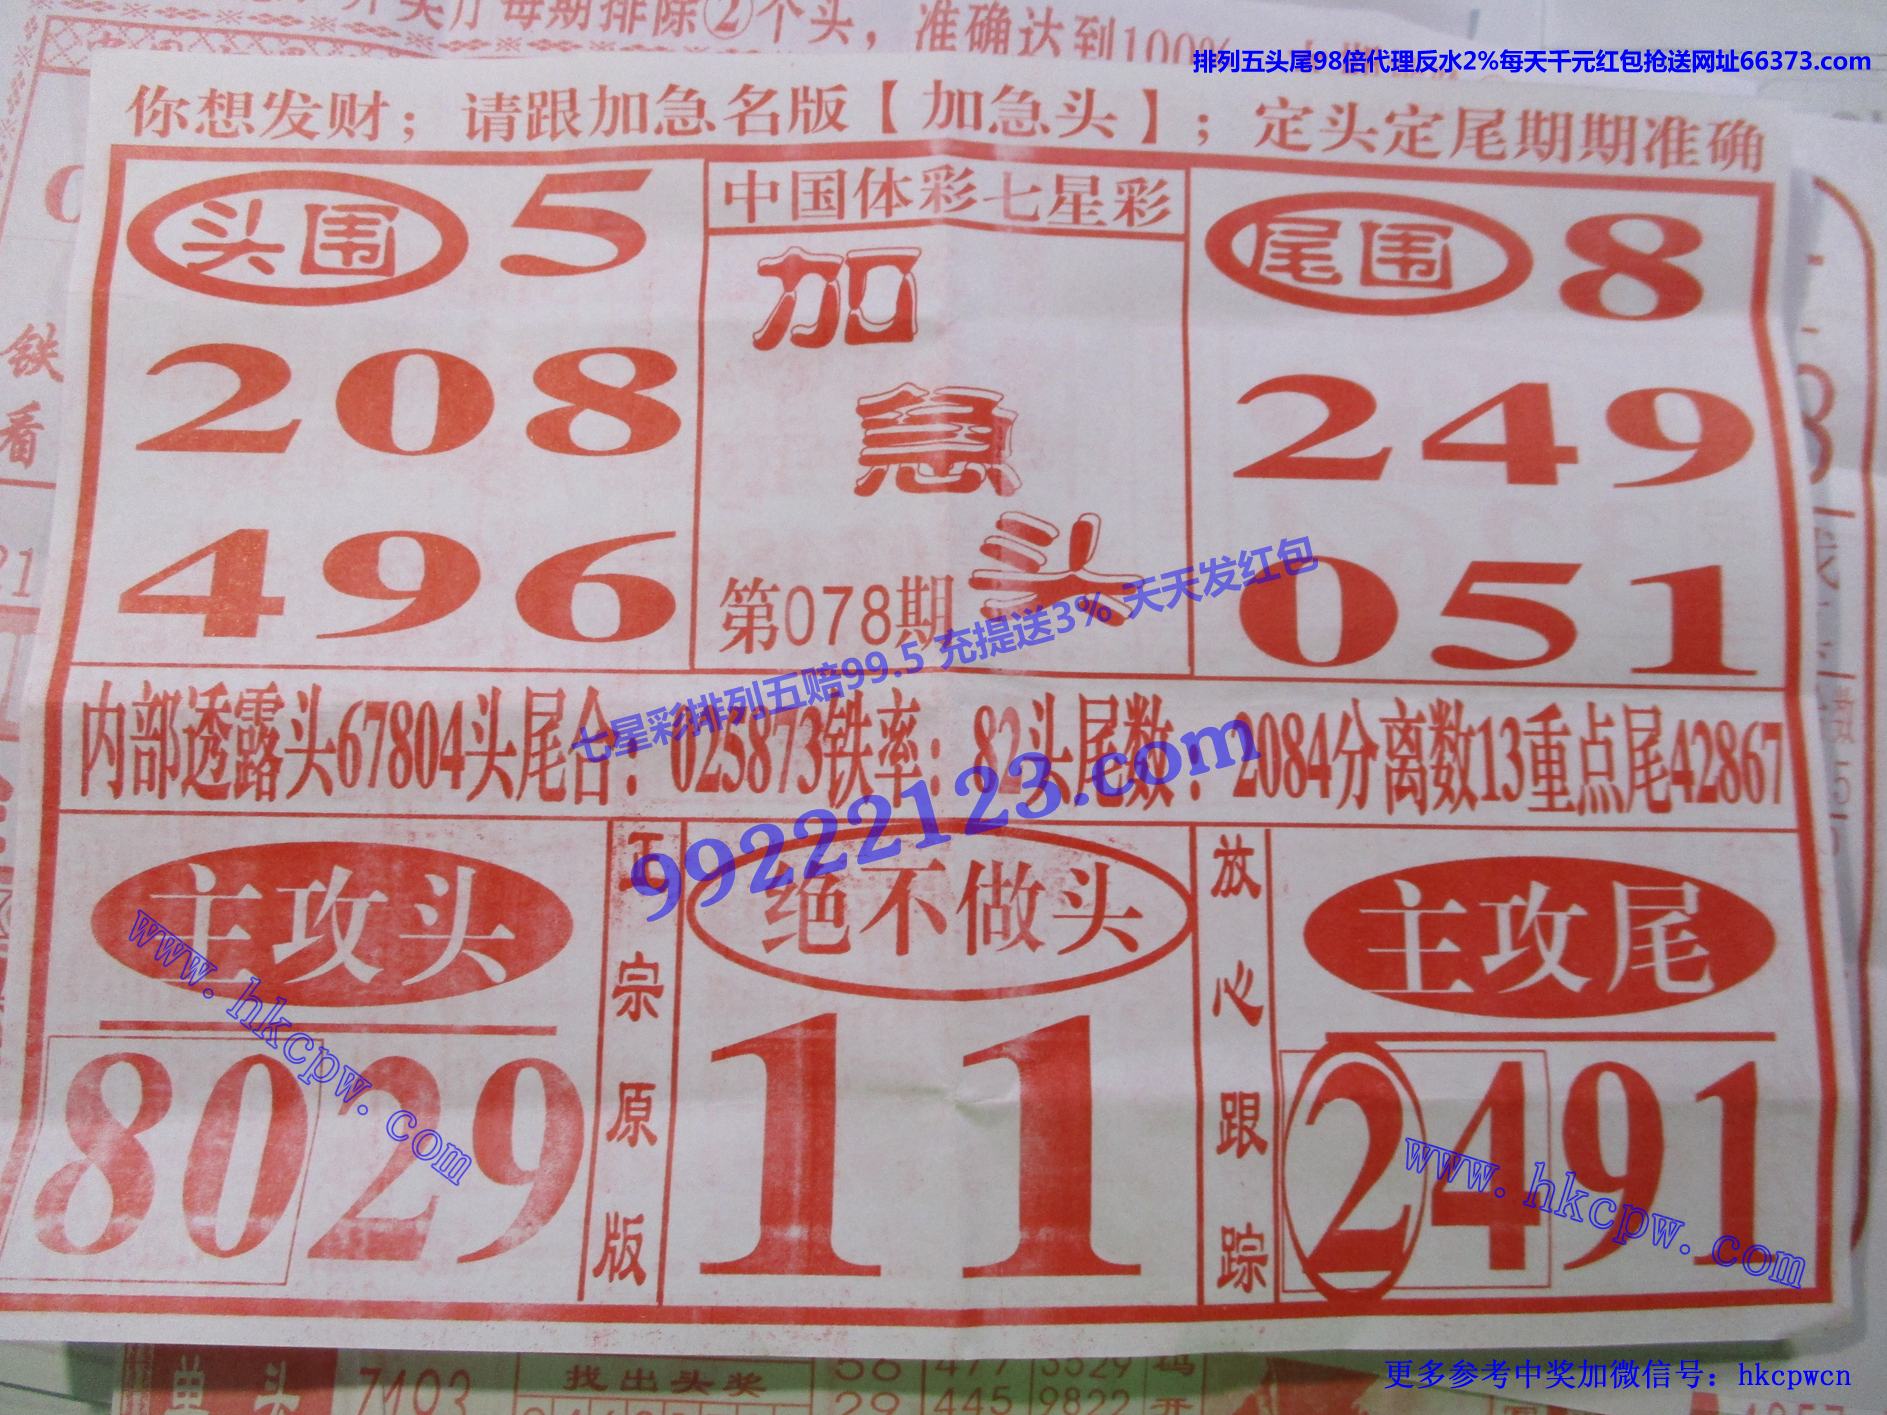 开奖厅每期排除②个头，准确达到100%
排列五头尾98倍代理反水2%每天千元红包抢送网址66373.com
你想发财；请跟加急名版【加急头】；定头定尾期期准确
头围 5
208
496
中国体彩七星彩
加
急
头
第078期
尾围 8
249
051
七星彩排列五赔99.5 充提送3% 天天发红包
99222123.com
内部透露头67804头尾合：025873铁率：82头尾数：2084分离数13重点尾42867
主攻头
8029
正宗原版
绝不做头
11
放心跟踪
主攻尾
2491
www.hkcpw.com
www.hkcpw.com
铁
看
21
单头
7193
找出头奖
58 477 3529 码
29 445 9822 开
更多参考中奖加微信号：hkcpwcn